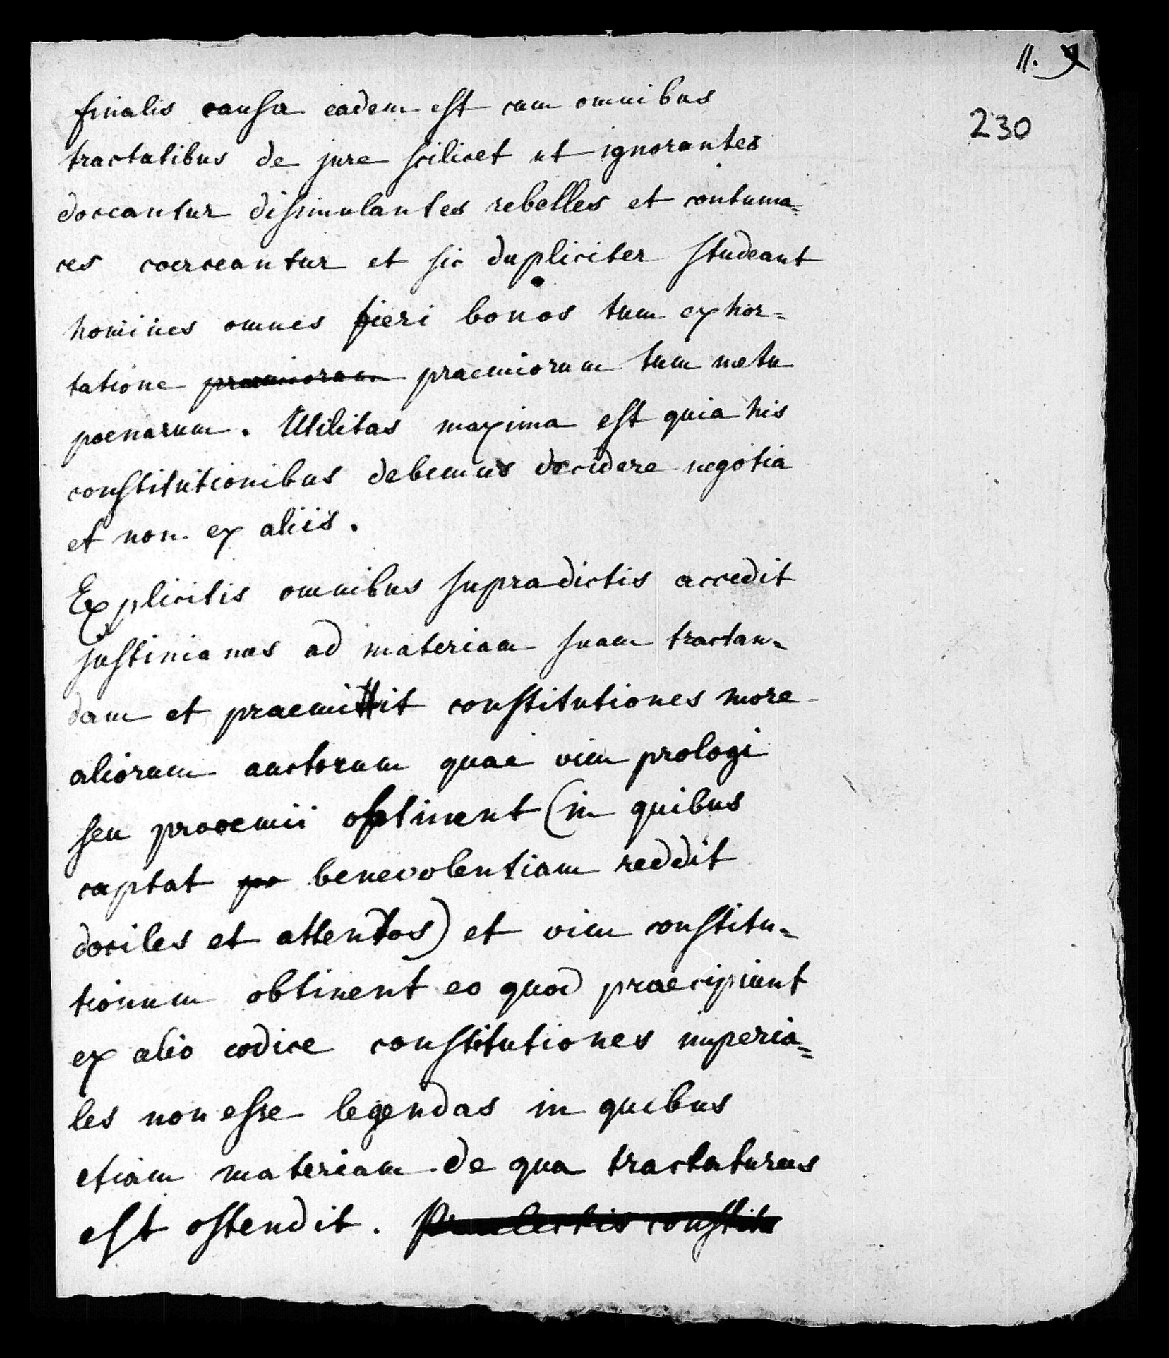 11. 9
230
finalis causa eadem est cum omnibus
tractatibus de jure scilicet ut ignorantes
doceantur dissimulantes rebelles et contuma=
ces coerceantur et sic dupliciter studeant
homines omnes fieri bonos tum exhor=
tatione praemiorum praemiorum tum metu
poenarum. Utilitas maxima est quia his
constitutionibus debemus decidere negotia
et non ex aliis.
Explicitis omnibus supradictis accedit
justinianus ad materiam suam tractan=
dam et praemittit constitutiones more
aliorum auctorum quae vim prologi
seu prooemii obtinent (in quibus
captat benevolentiam reddit
dociles et attentos) et vim constitu=
tionum obtinent eo quod praecipiunt
ex alio codice constitutiones imperia=
les non esse legendas in quibus
etiam materiam de qua tractaturus
est ostendit. Praelectis constitu